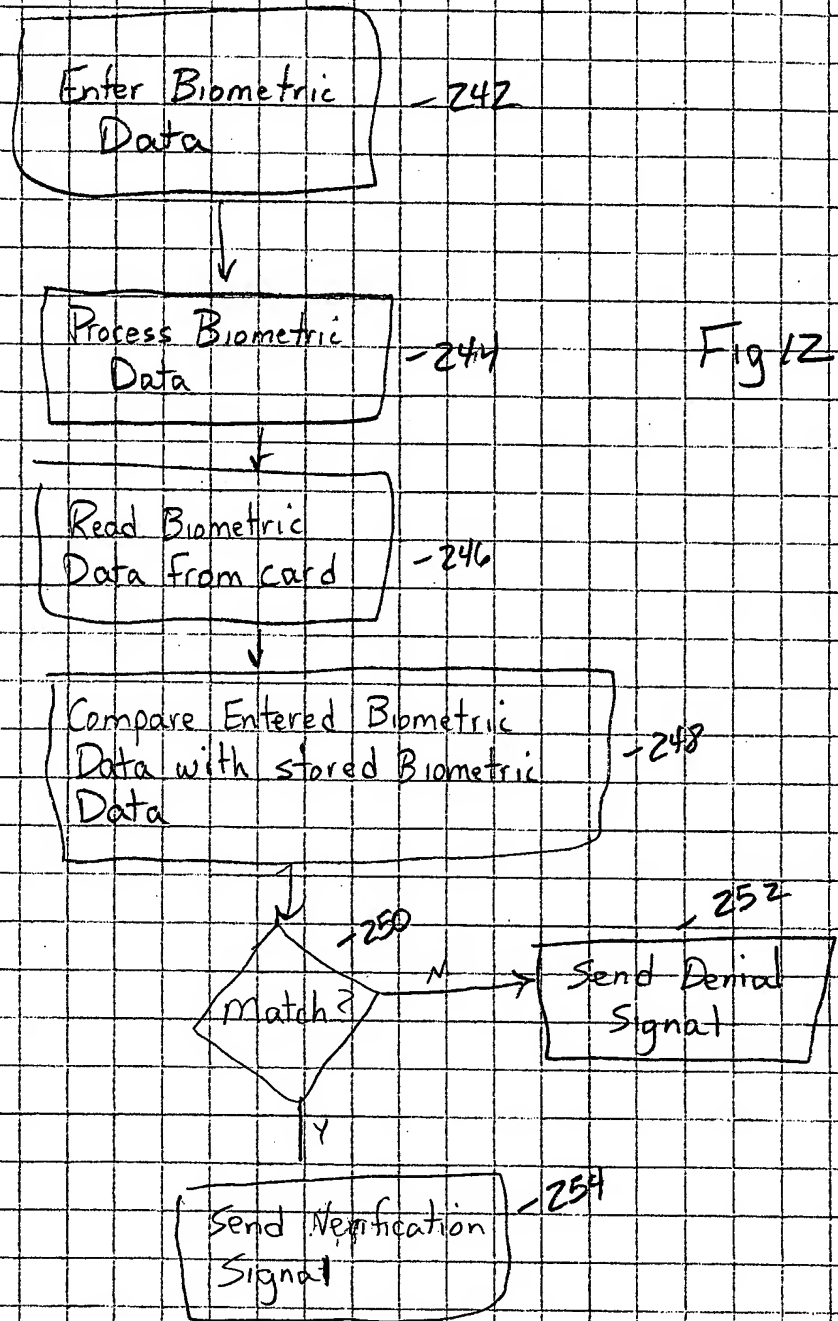 Enter Biometric
Data
- 242
Process Biometric
Data
- 244
Fig 12
Read Biometric
Data from card
- 246
Compare Entered Biometric
Data with stored Biometric
Data
- 248
- 250
Match?
N
- 252
Send Denial
Signal
Y
Send Verification
Signal
- 254